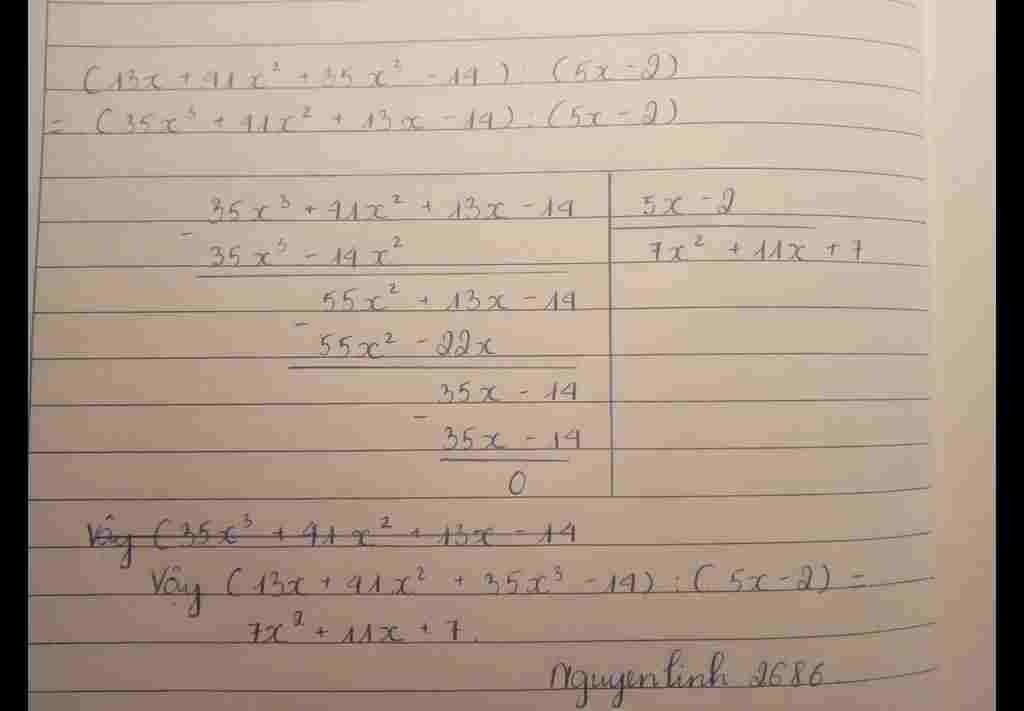 (13x + 41x² + 35x³ - 14) : (5x - 2)
= (35x³ + 41x² + 13x - 14) : (5x - 2)
35x³ + 41x² + 13x - 14 | 5x - 2
- 35x³ - 14x² | 7x² + 11x + 7
55x² + 13x - 14
- 55x² - 22x
35x - 14
- 35x - 14
0
Vậy (35x³ + 41x² + 13x - 14
Vậy (13x + 41x² + 35x³ - 14) : (5x - 2) =
7x² + 11x + 7.
Nguyenlinh 2686